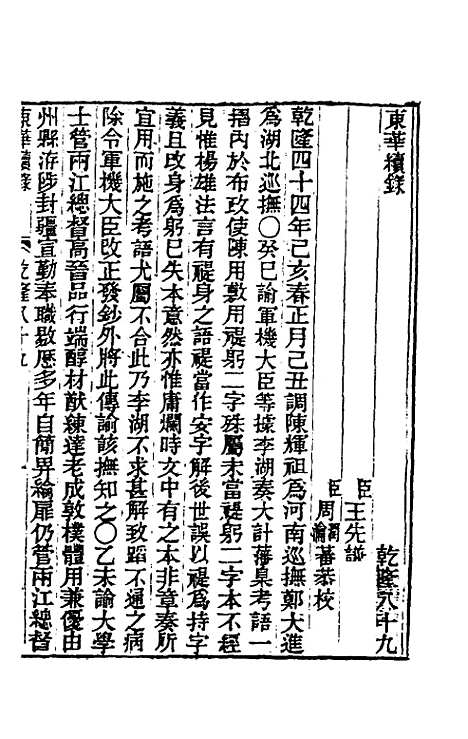 東華續錄
乾隆八十九
臣王先謙
臣周潤蕃
瀹蕃恭校
乾隆四十四年己亥春正月己丑調陳輝祖為河南巡撫鄭大進
為湖北巡撫〇癸巳諭軍機大臣等據李湖奏大計藩臬考語一
摺內於布政使陳用敷用禔躬二字殊屬未當禔躬二字本不經
見惟楊雄法言有禔身之語禔當作安字解後世誤以禔為持字
義且改身為躬已失本意然亦惟庸爛時文中有之本非章奏所
宜用而施之考語尤屬不合此乃李湖不求甚解致蹈不通之病
除令軍機大臣改正發鈔外將此傳諭該撫知之〇乙未諭大學
士管兩江總督高晉品行端醇材猷練達老成敦樸體用兼優由
州縣洊陟封疆宣勤奉職敭歷多年自簡畀綸扉仍管兩江總督
東華續錄 乾隆八十九 一